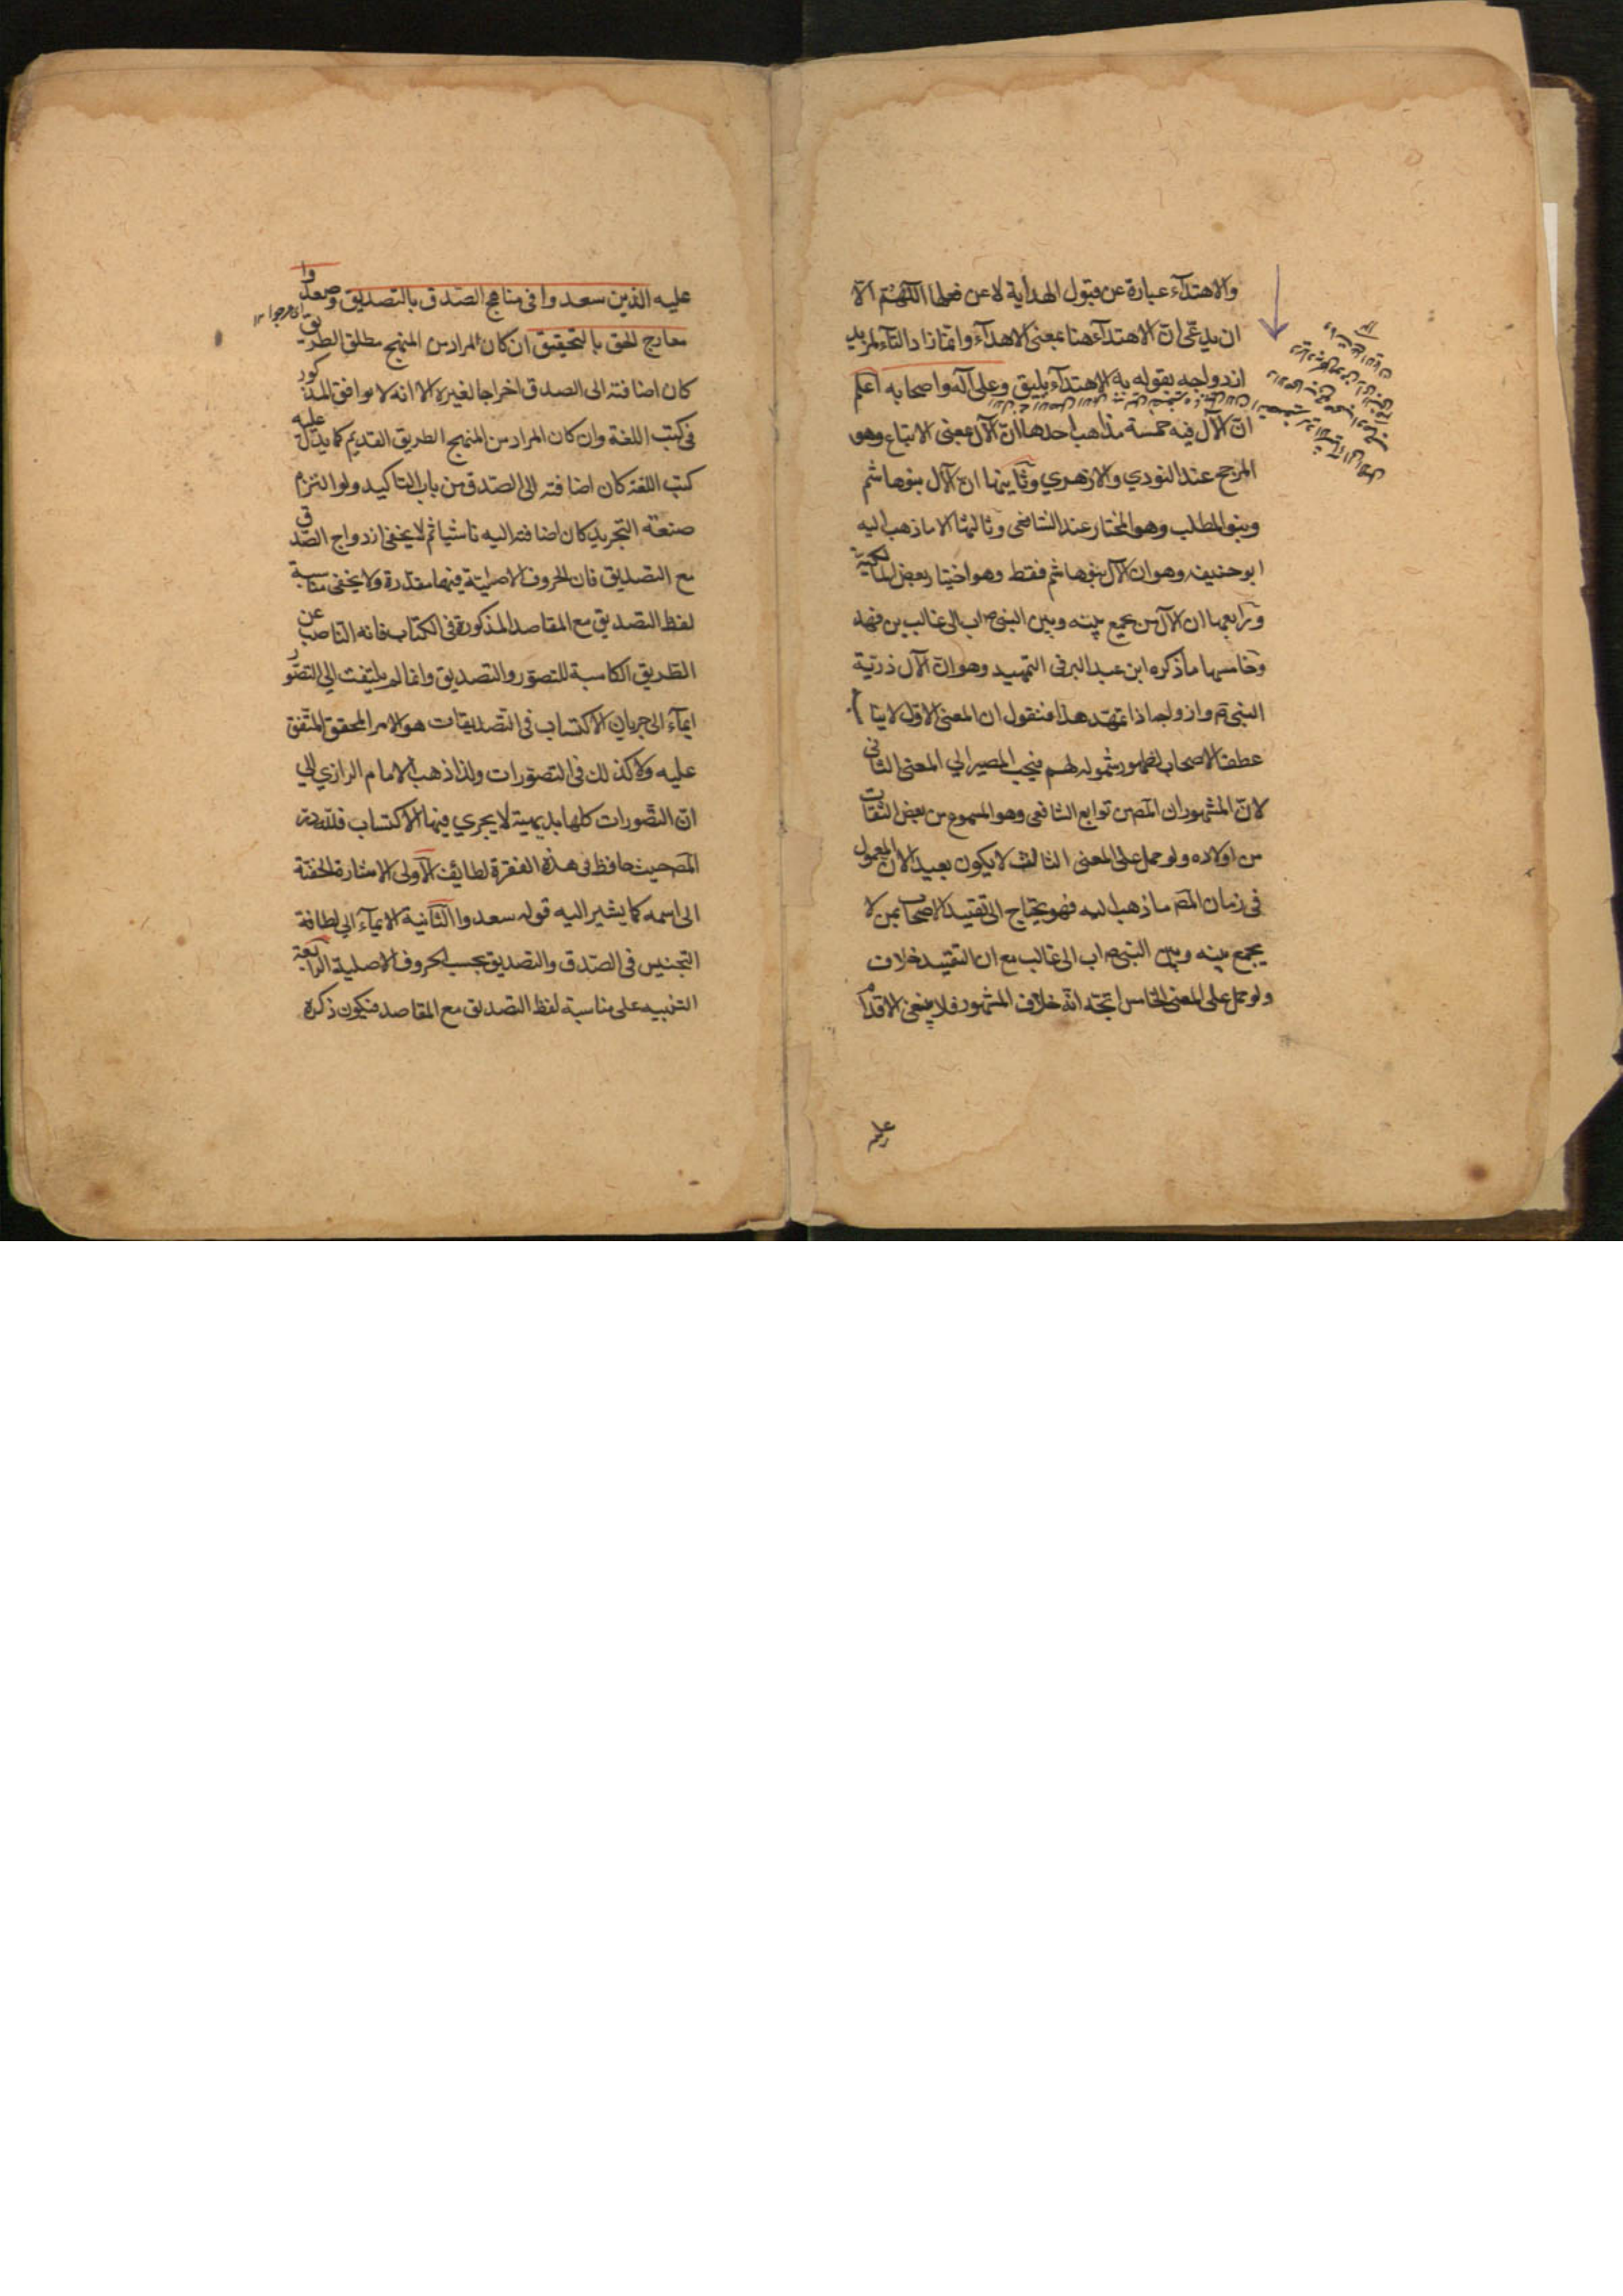 والاهتدآء عبارة عن قبول الهداية لا عن فعلها اللّهمّ الّا
ان يدعّى انّ الاهتدآء هنا بمعنى الاهدآء وانّما زاد التآء لمزيد
ازدواجه بقوله به الاهتدآء يليق وعلى آله واصحابه اعلم
انّ الآل فيه خمسة مذاهب احدها انّ الآل بمعنى الاتباع وهو
المرجح عند النووي والازهري وثانيها ان الآل بنو هاشم
وبنو المطلب وهو المختار عند الشافعى وثالثها ما ذهب اليه
ابو حنيفه وهو ان الآل بنو هاشم فقط وهو اختيار بعض المالكية
ورابعها ان الآل من يجمع بينه وبين النبى ص اب الى غالب بن فهد
وخامسها ما ذكره ابن عبد البر فى التمهيد وهو انّ الآل ذريّة
النبى وازواجه اذا تمهّد هذا فنقول ان المعنى الاوّل لا ينا
عطف الاصحاب لظهور شموله لهم فيجب المصير الي المعنى الثانى
لانّ المشهور ان المص من توابع الشافعى وهو المسموع من بعض الثقات
من اولاده ولو حمل على المعنى الثالث لا يكون بعيدا لان المعمول
فى زمان المص ما ذهب اليه فهو يحتاج الى تقييد الاصحاب بمن لا
يجمع بينه وبين النبى ص اب الى غالب مع ان التقييد خلاف
ولو حمل على المعنى الخامس اتجه انّه خلاف المشهور فلا ينبغى الاقدام
عليه
عليه الذين سعدوا فى مناهج الصّدق بالتصديق وصعدوا
اى عرجوا ١٢
معارج الحق بالتحقيق ان كان المراد من المنهج مطلق الطريق
كان اضافته الى الصدق اخراجا لغيره الا انه لا يوافق المذكور
فى كتب اللغة وان كان المراد من المنهج الطريق القديم كما يدلّ عليه
كتب اللغة كان اضافته الى الصّدق من باب التاكيد ولو التزم
صنعة التجريد كان اضافته اليه تاسّيا ثم لا يخفى ازدواج الصّدق
مع التصديق فان الحروف الاصليّة فيهما متقدرة ولا يخفى مناسبة
لفظ التصديق مع المقاصد المذكورة فى الكتاب فانه الناصب عن
الطريق الكاسبة للتصوّر والتصديق وانما لم يلتفت الي التصوّر
ايمآء الى جريان الاكتساب فى التصديقات هو الامر المحقق المتّفق
عليه ولا كذلك فى التصوّرات ولذا ذهب الامام الرازي الي
انّ التّصورات كلها بديهية لا يجري فيها الاكتساب فللّه در
المص حيث حافظ فى هذه الفقرة لطائف الآولى الاشارة الخفيّة
الى اسمه كما يشير اليه قوله سعدوا الثّانية الايمآء الي لطافة
التجنيس فى الصّدق والتصديق بحسب الحروف الاصلية الرابعة
التنبيه على مناسبة لفظ التصديق مع المقاصد فيكون ذكره